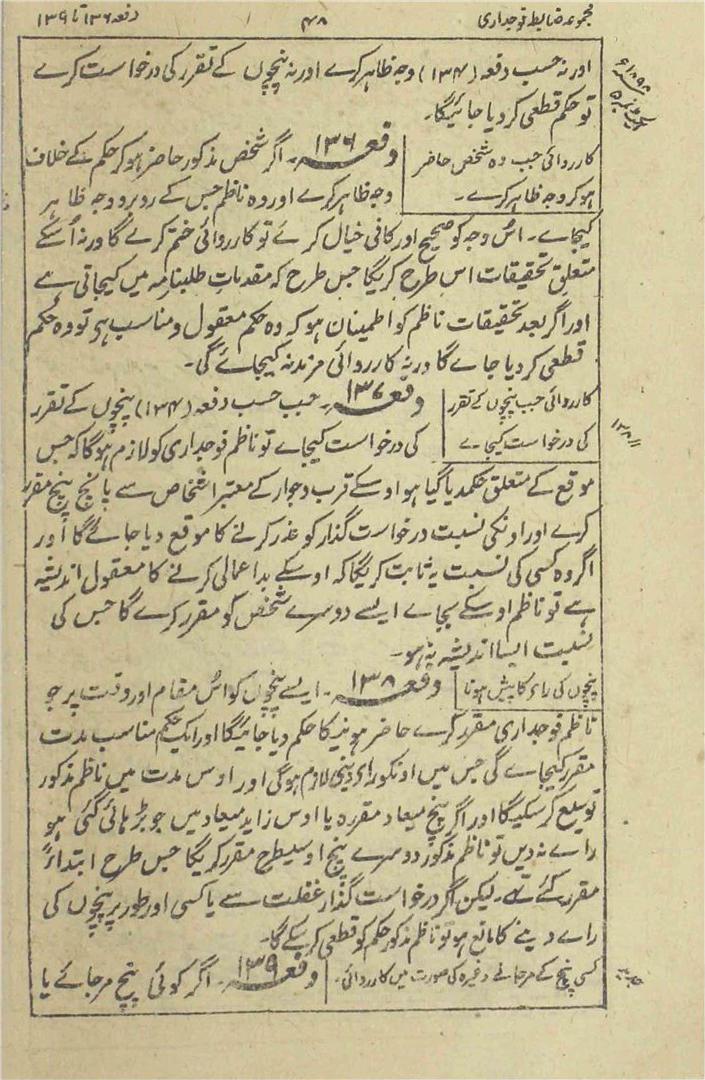 مجموعہ ضابطہ فوجداری
۴۸
دفعہ ۱۳۶ تا ۱۳۹
اور نہ حسب دفعہ (۱۳۴) وجہ ظاہر کرے اور نہ پنچوں کے تقرر کی درخواست کرے
تو حکم قطعی کر دیا جائیگا۔
کارروائی جب وہ شخص حاضر
ہو کر وجہ ظاہر کرے۔
دفعہ ۱۳۶۔ اگر شخص مذکور حاضر ہو کر حکم کے خلاف
وجہ ظاہر کرے اور وہ ناظم جس کے روبرو وجہ ظاہر
کیجاے۔ اس وجہ کو صحیح اور کافی خیال کرے تو کارروائی ختم کرے گا ورنہ اُسکے
متعلق تحقیقات اس طرح کریگا جس طرح کہ مقدمات طلبنامہ میں کیجاتی ہے
اور اگر بعد تحقیقات ناظم کو اطمینان ہو کہ وہ حکم معقول و مناسب ہی تو وہ حکم
قطعی کر دیا جاے گا ورنہ کارروائی مزید نہ کیجاے گی۔
کارروائی جب پنچوں کے تقرر
کی درخواست کیجاے
دفعہ ۱۳۷۔ جب حسب دفعہ (۱۳۴) پنچوں کے تقرر
کی درخواست کیجاے تو ناظم فوجداری کو لازم ہوگا کہ جس
موقع کے متعلق حکم دیا گیا ہو اوسکے قرب و جوار کے معتبر اشخاص سے پانچ پنچ مقرر
کرے اور اونکی نسبت درخواست گذار کو عذر کرنے کا موقع دیا جائے گا اور
اگر وہ کسی کی نسبت یہ ثابت کریگا کہ اوسکے بداعمالی کرنے کا معقول اندیشہ
ہے تو ناظم اوسکے بجاے ایسے دوسرے شخص کو مقرر کرے گا جس کی
نسبت ایسا اندیشہ نہ ہو۔
پنچوں کی راے کا پیش ہونا
دفعہ ۱۳۸۔ ایسے پنچوں کو اُس مقام اور وقت پر جو
ناظم فوجداری مقرر کرے حاضر ہونیکا حکم دیا جائیگا اور ایک مناسب مدت
مقرر کیجاے گی جس میں اونکو راے دینی لازم ہوگی اور اوس مدت میں ناظم مذکور
توسیع کر سکیگا اور اگر پنچ میعاد مقررہ یا اوس زاید میعاد میں جو بڑہائی گئی ہو
راے نہ دیں تو ناظم مذکور دوسرے پنچ اوسیطرح مقرر کریگا جس طرح ابتداءً
مقرر کئے تھے۔ لیکن اگر درخواست گذار غفلت سے یا کسی اور طور پر پنچوں کی
راے دینے کا مانع ہو تو ناظم مذکور حکم کو قطعی کر سکے گا۔
کسی پنچ کے مرجانے وغیرہ کی صورت میں کارروائی۔
دفعہ ۱۳۹۔ اگر کوئی پنچ مر جائے یا